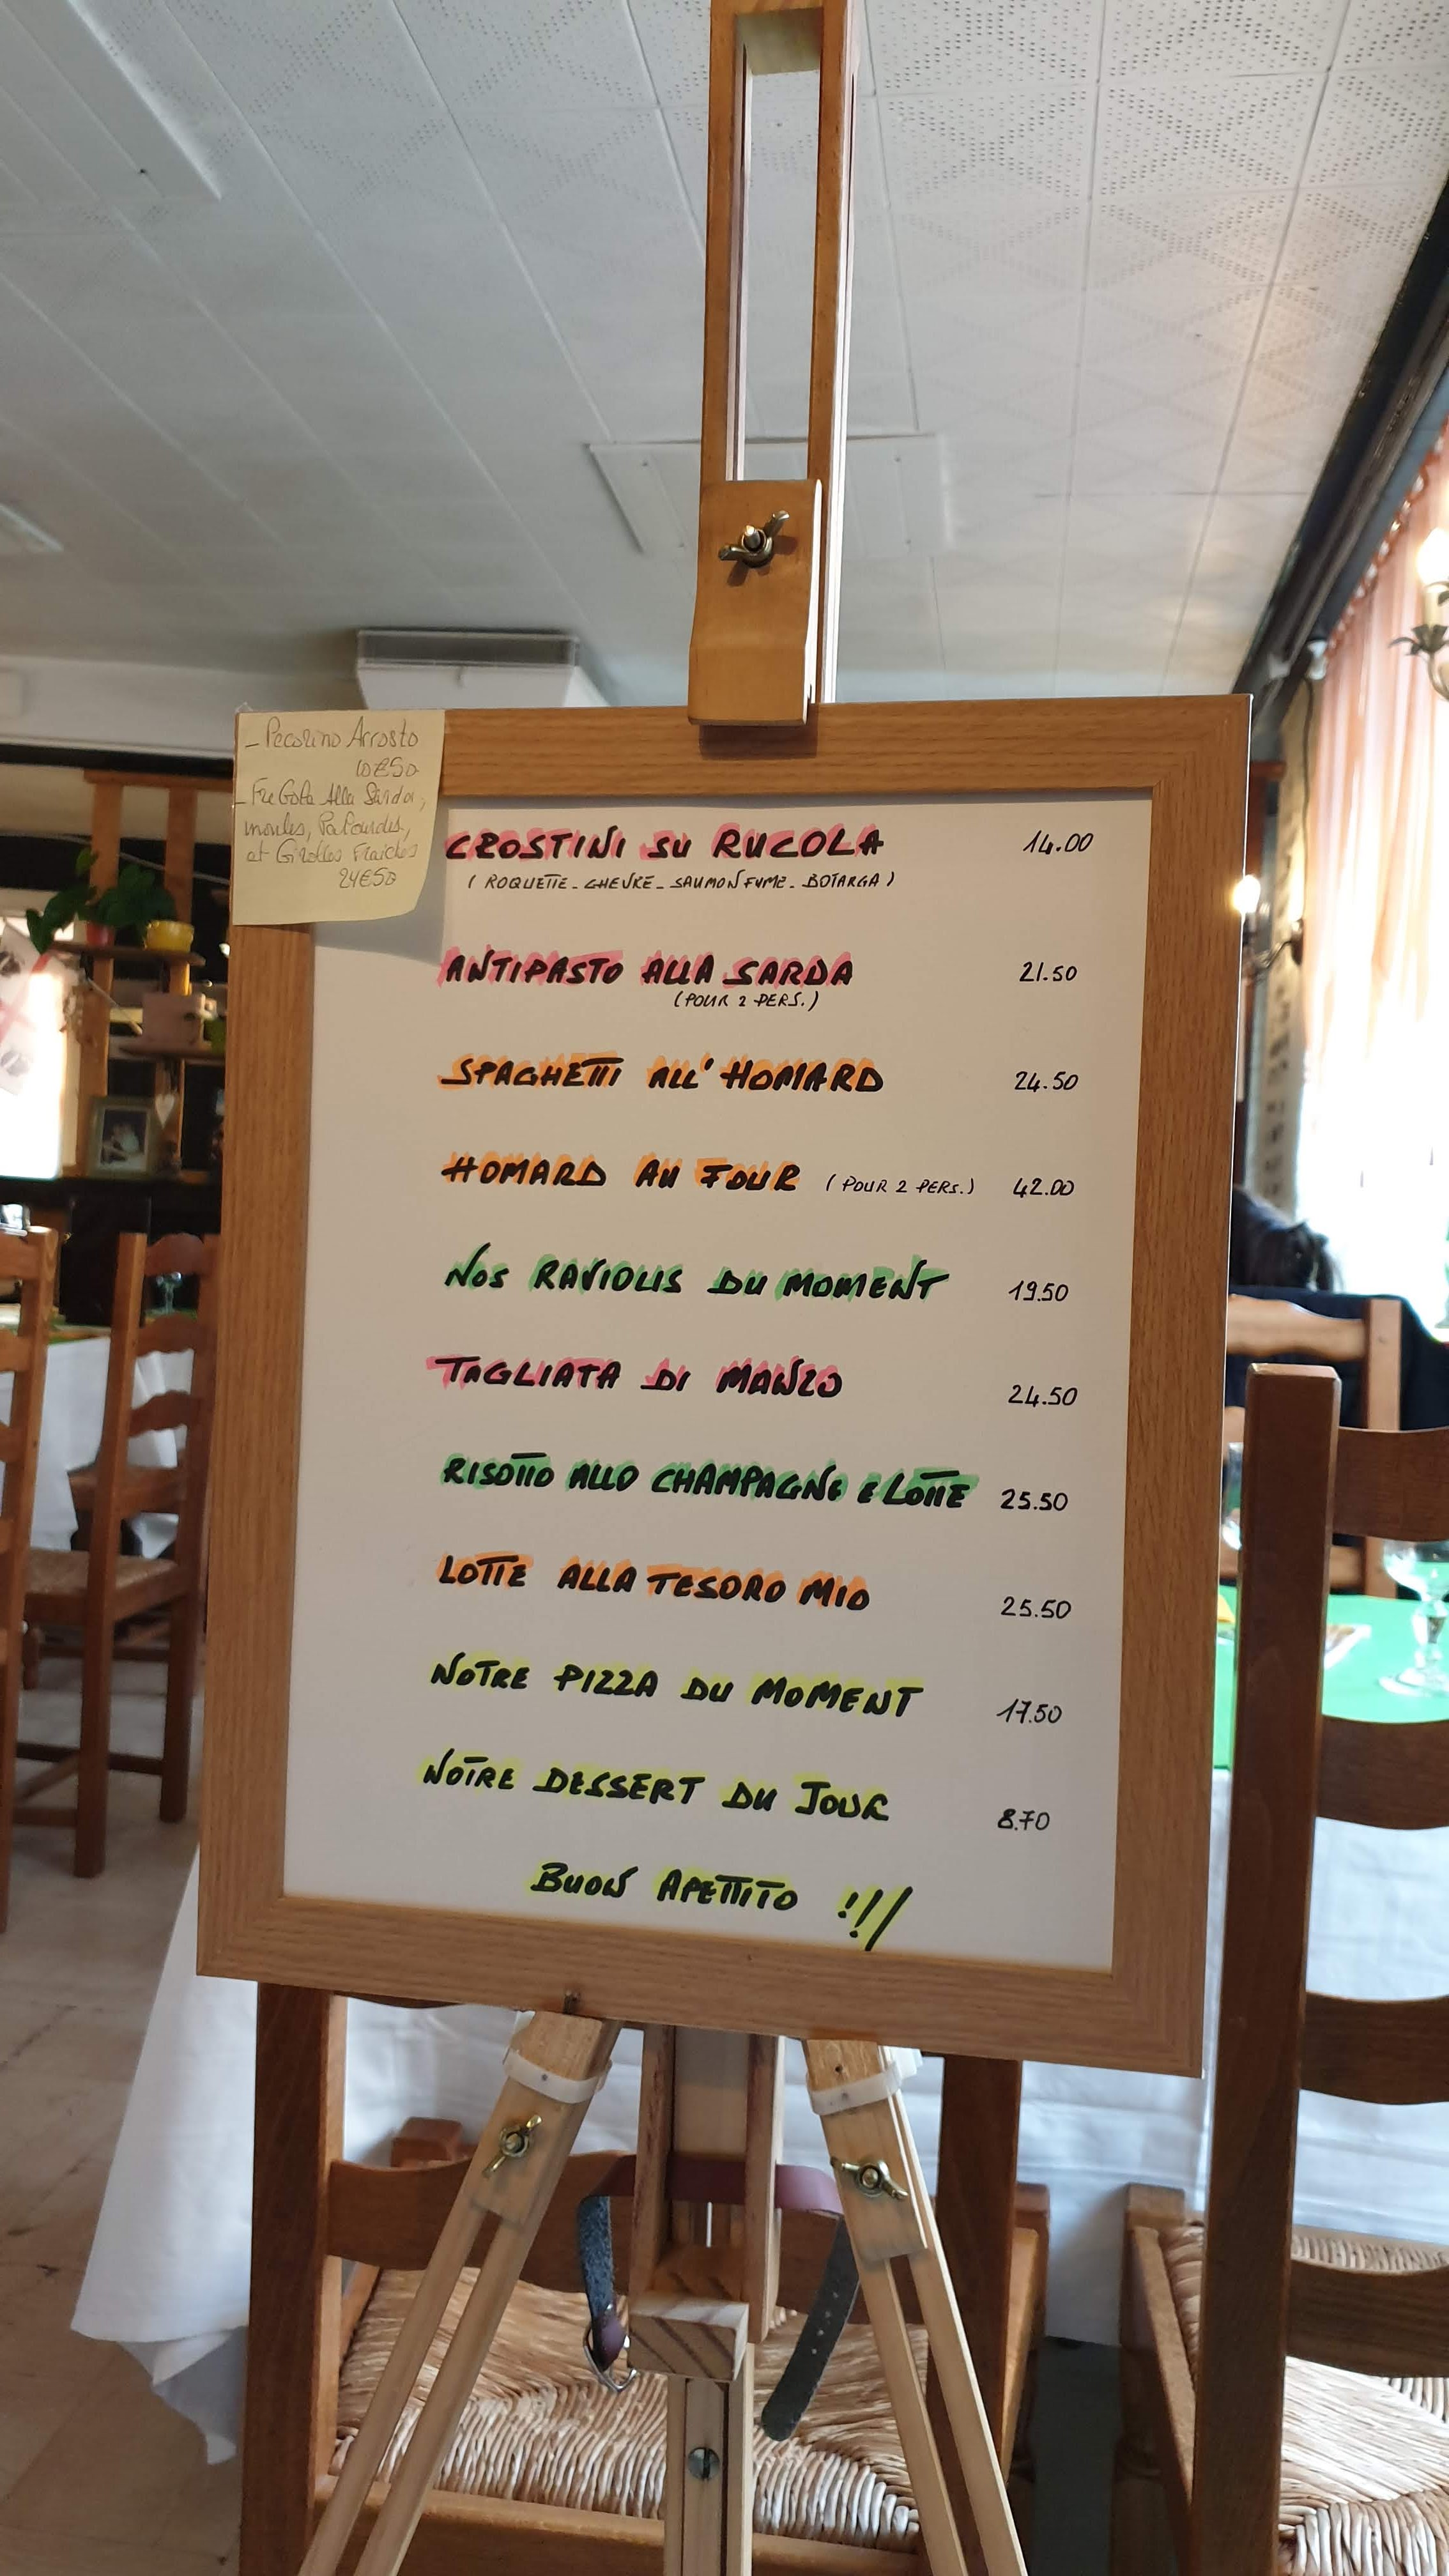 - Pecorino Arrosto
10€50
- FreGola Alla Sarda,
moules, Palourdes,
et Girolles Fraiches
24€50
CROSTINI SU RUCOLA 14.00
( ROQUETTE - CHEVRE - SAUMON FUME - BOTARGA )
ANTIPASTO ALLA SARDA 21.50
(POUR 2 PERS.)
SPAGHETTI ALL' HOMARD 24.50
HOMARD AU FOUR ( POUR 2 PERS.) 42.00
NOS RAVIOLIS DU MOMENT 19.50
TAGLIATA DI MANZO 24.50
RISOTTO ALLO CHAMPAGNE E LOTTE 25.50
LOTTE ALLA TESORO MIO 25.50
NOTRE PIZZA DU MOMENT 17.50
NOTRE DESSERT DU JOUR 8.70
BUON APETTITO !!!